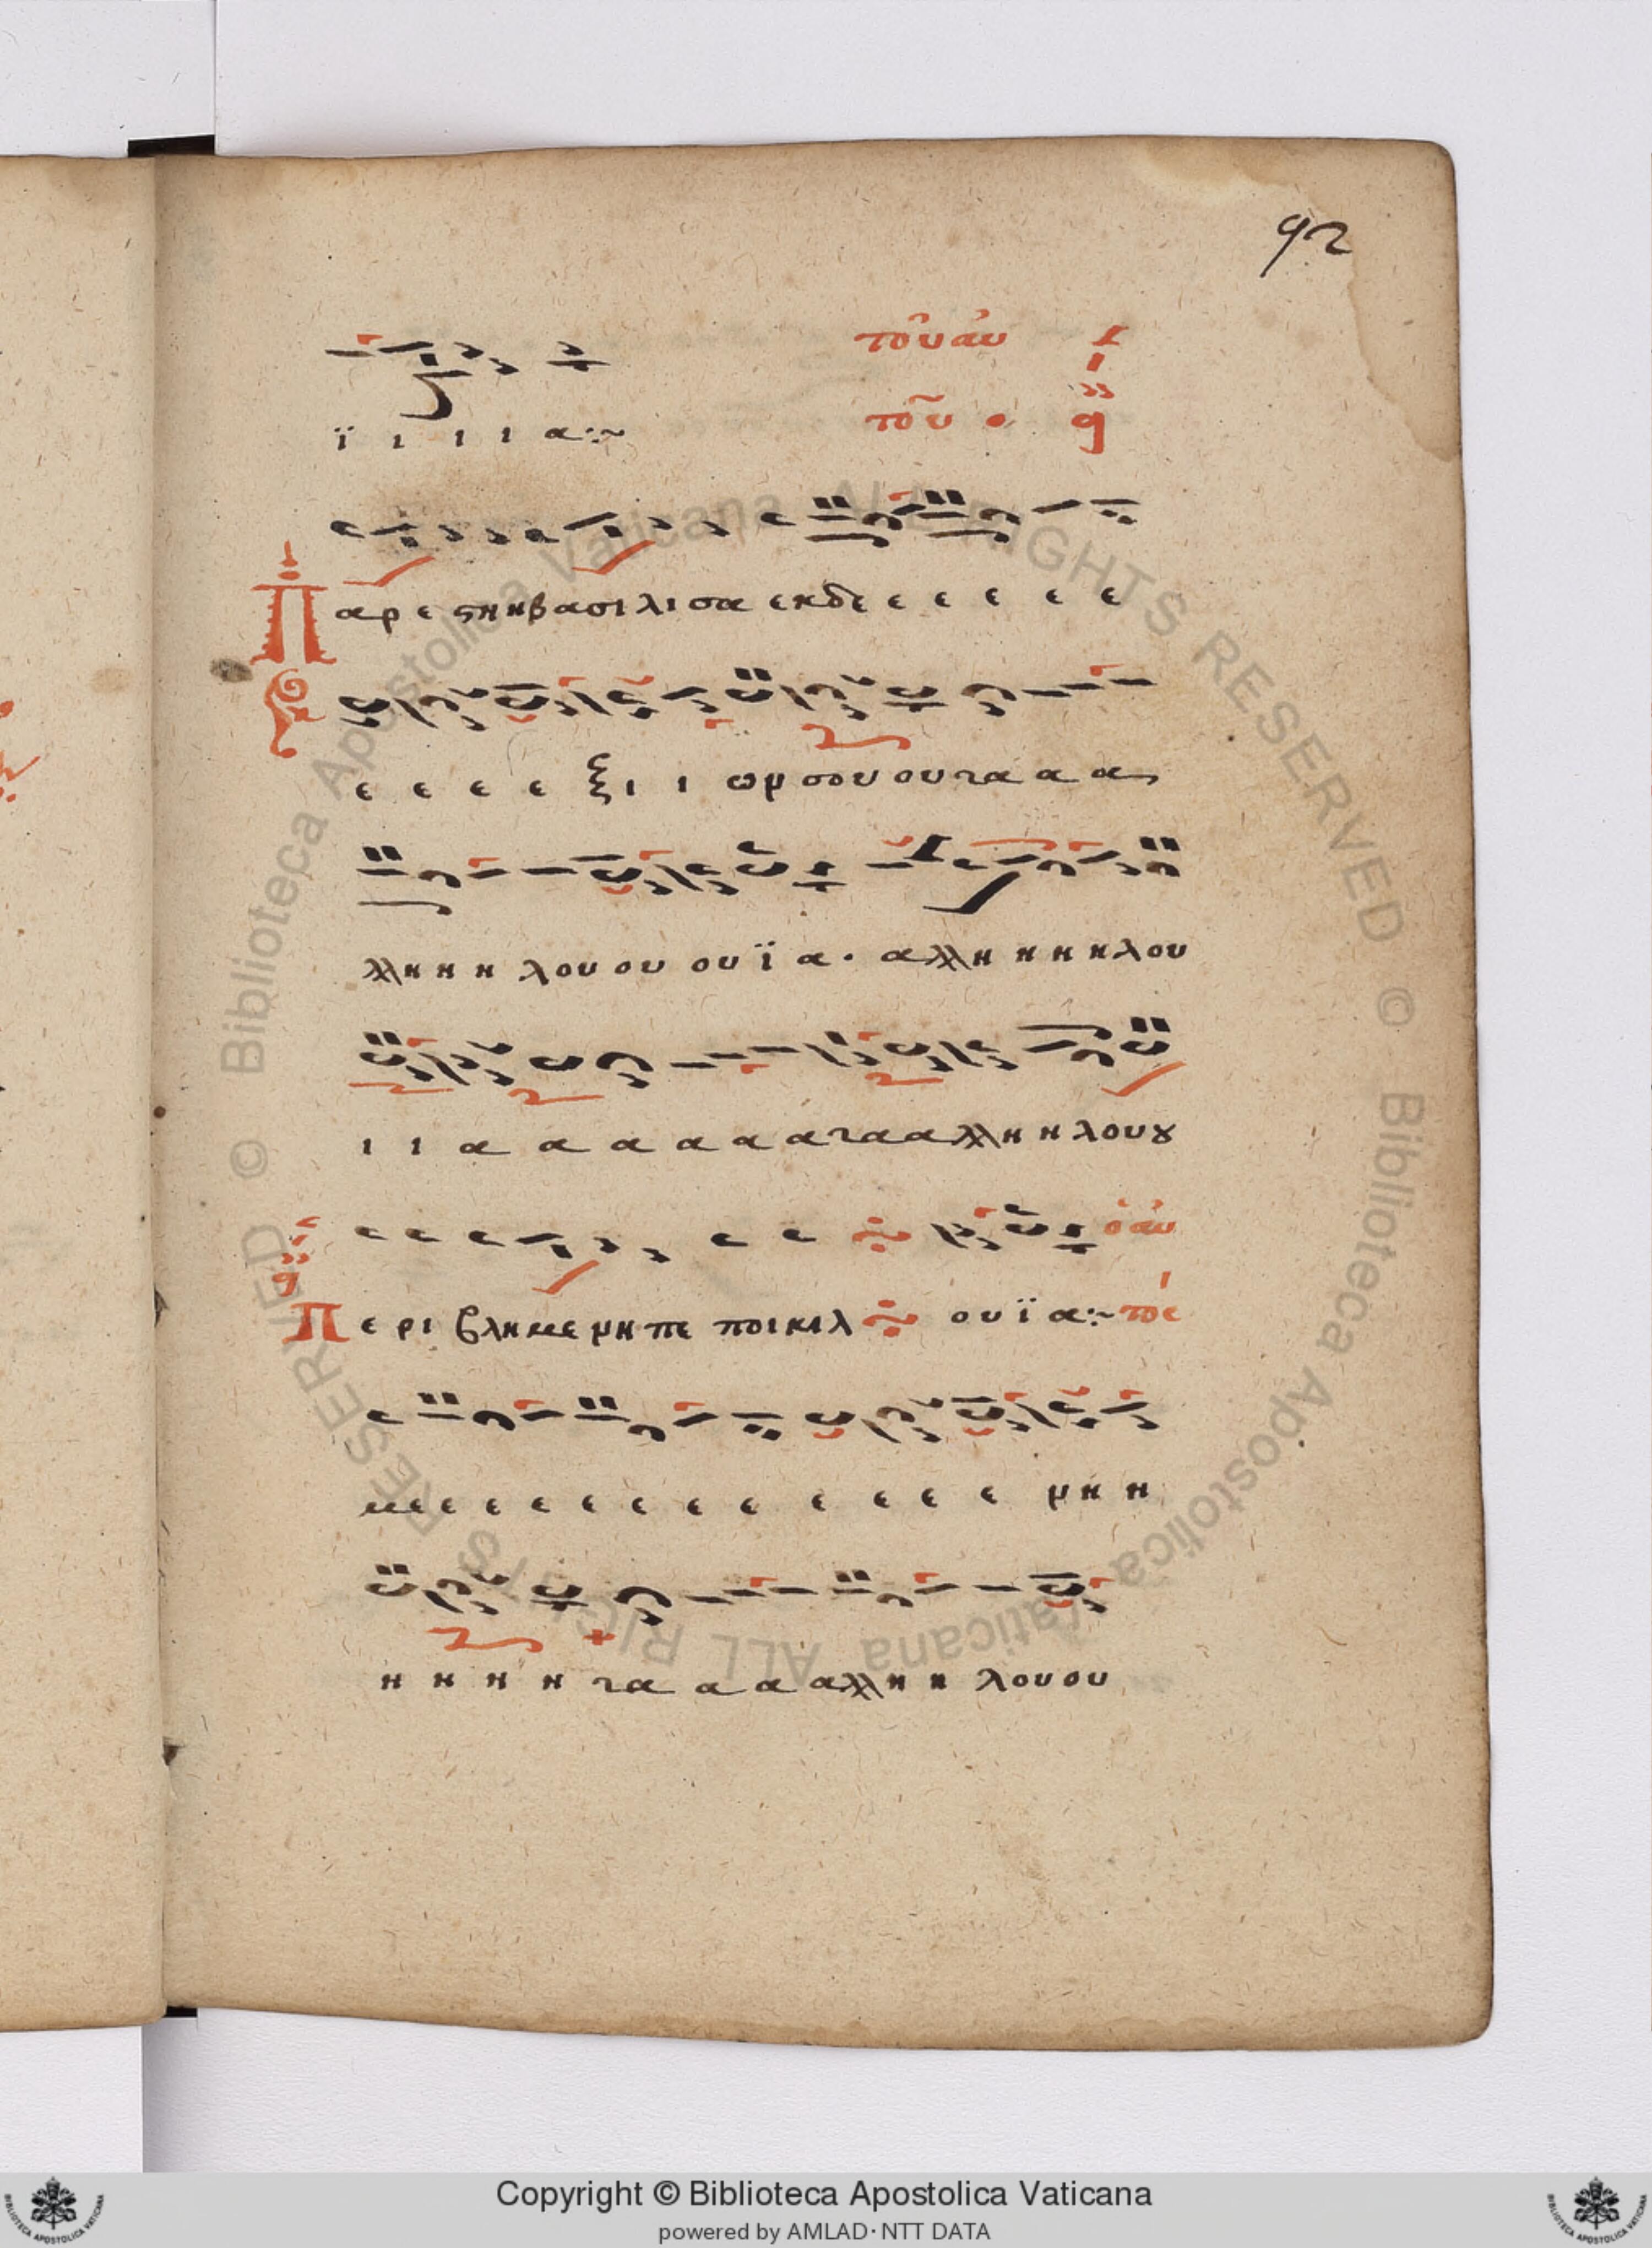 92
τοῦ αὐ
ϊ ι ι ι α:~ τοῦ
αρεστηηβασιλισα εκδε ε ε ε ε ε
Π
ε ε ε ε ξι ι ωμ σου ου τα α α
λληηη λου ου ου ϊ α· αλλη η η ηλου
ι ι α α α α α α τααλληηλουȣ
ὁ αὐ
Περιβλημεμηπε ποικιλ ουϊα:~
με ε ε ε ε ε ε ε ε ε ε ε μη η
η η η η τα α α αλληη λουου
© Biblioteca Apostolica Vaticana ALL RIGHTS RESERVED © Biblioteca Apostolica Vaticana ALL RIGHTS RESERVED
Copyright © Biblioteca Apostolica Vaticana
powered by AMLAD·NTT DATA